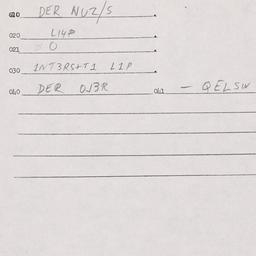 010 DER NUZ/S
020 LI4P
021 0
030 1NT3RS+T1 L1P
040 DER OJ3R 041 - QELSW